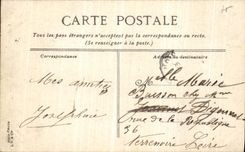 CARTE POSTALE
Tous les pays étrangers n'acceptent pas la correspondance au recto.
(Se renseigner à la poste)
Correspondance
Mes amitiés
Joséphine
Mlle Marie
Buisson chez Mme
rue de la République
36
Terrenoire Loire